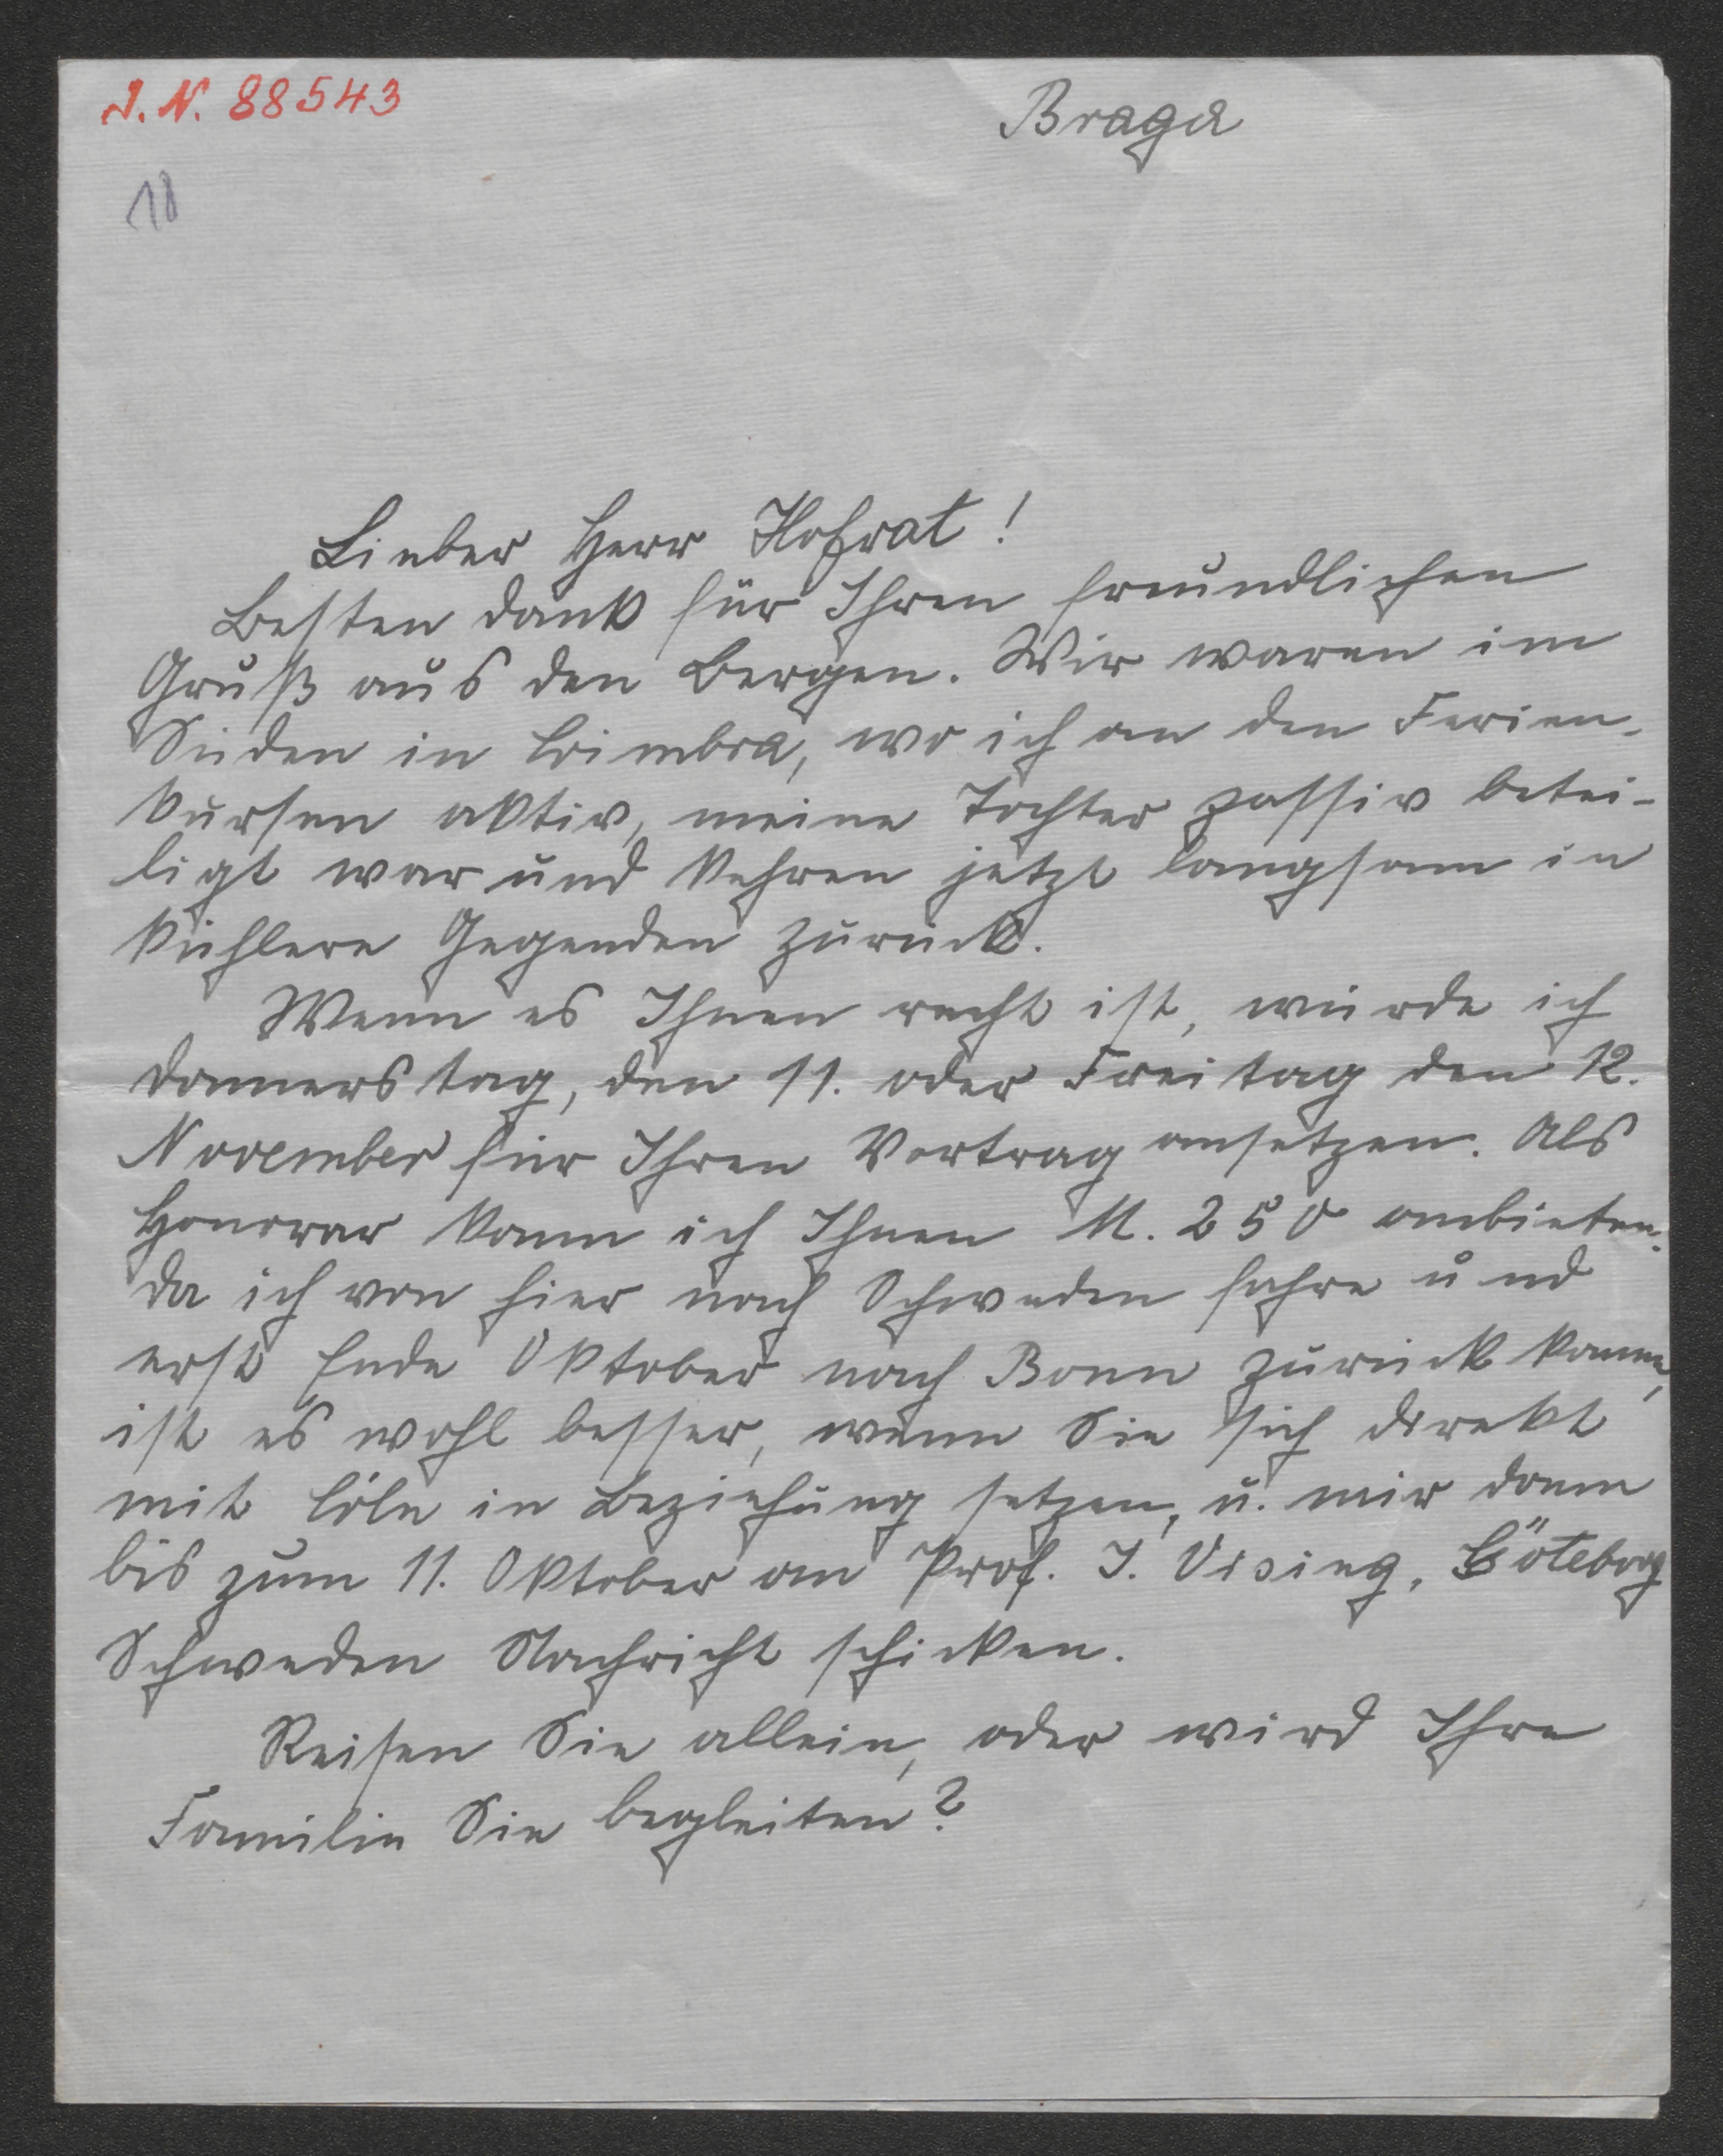 I. N. 88543
Braga
18
Lieber Herr Hofrat!
Besten Dank für Ihren freundlichen
Gruß aus den Bergen. Wir waren im
Süden in Coimbra, wo ich an den Ferien-
kursen aktiv, meine Tochter passiv betei-
ligt war und kehren jetzt langsam in
kühlere Gegenden zurück.
Wenn es Ihnen recht ist, würde ich
Donnerstag, den 11. oder Freitag den 12.
November für Ihren Vortrag ansetzen. Als
Honorar kann ich Ihnen M. 250 anbieten.
Da ich von hier nach Schweden fahre und
erst Ende Oktober nach Bonn zurück komme,
ist es wohl besser, wenn Sie sich direkt
mit Cöln in Beziehung setzen, u. mir dann
bis zum 11. Oktober an Prof. J. Vising, Göteborg
Schweden Nachricht schicken.
Reisen Sie allein, oder wird Ihre
Familie Sie begleiten?